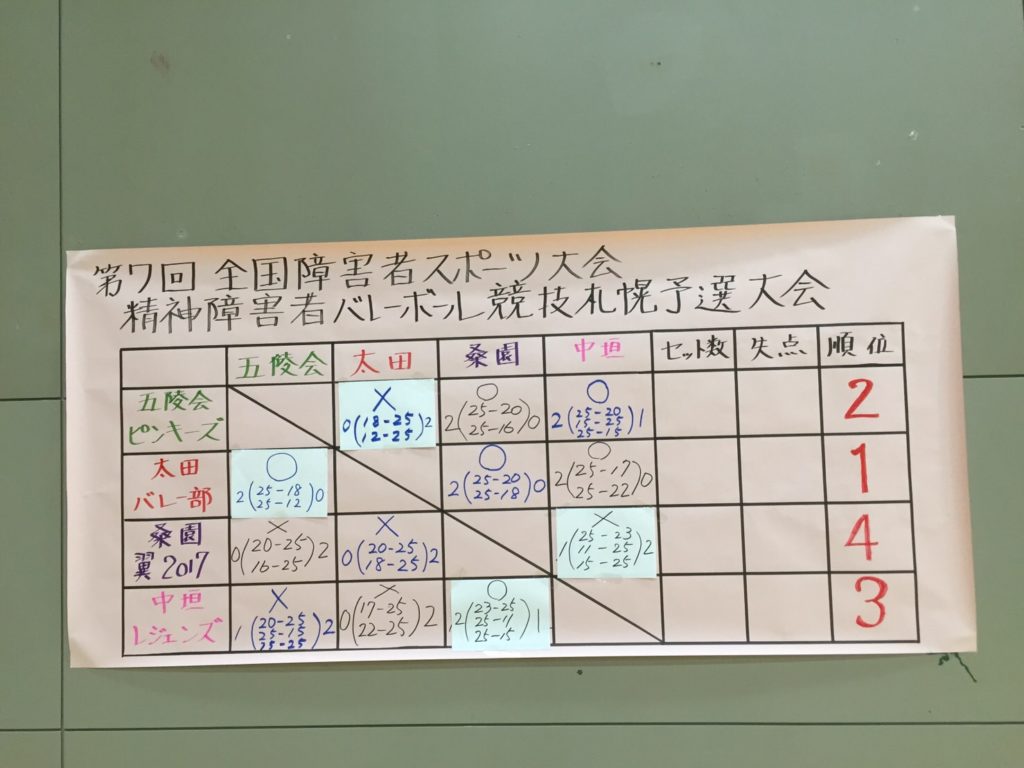 第7回 全国障害者スポーツ大会
精神障害者バレーボール競技札幌予選大会
五陵会 太田 桑園 中垣 セット数 失点 順位
五陵会
ピンキーズ
× 0(18-25 12-25)2
○ 2(25-20 25-16)0
○ 2(25-20 15-25 25-15)1
2
太田
バレー部
○ 2(25-18 25-12)0
○ 2(25-20 25-18)0
○ 2(25-17 25-22)0
1
桑園
翼2017
× 0(20-25 16-25)2
× 0(20-25 18-25)2
× 1(25-23 11-25 15-25)2
4
中垣
レジェンズ
× 1(20-25 25-15 15-25)2
× 0(17-25 22-25)2
○ 2(23-25 25-11 25-15)1
3